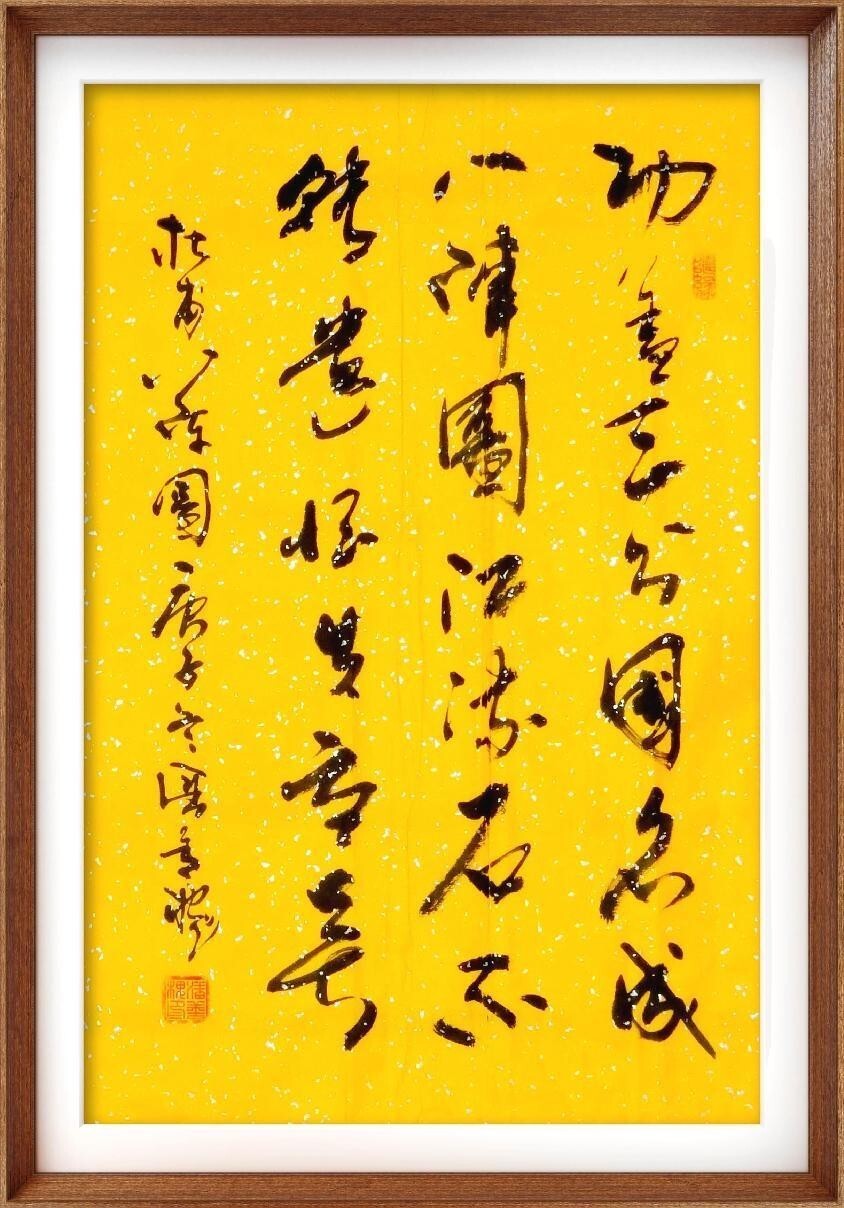 功蓋三分國名成
八陣圖江流石不
轉遺恨失吞吳
杜甫八陣圖庚子冬潘